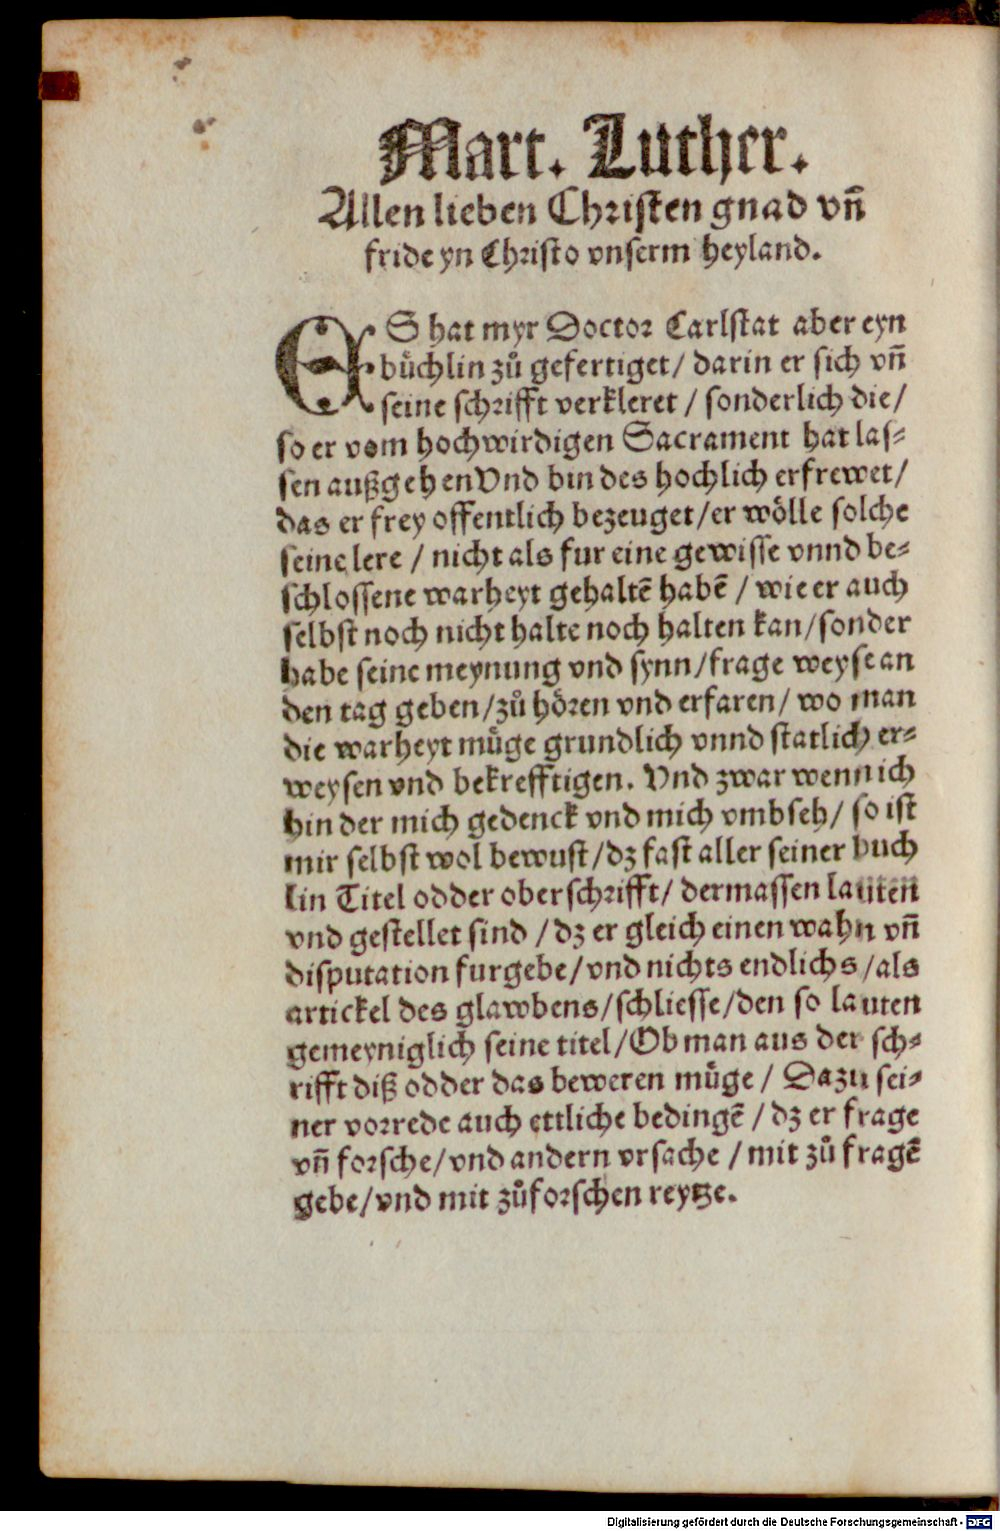 Mart. Luther.
Allen lieben Christen gnad vñ
fride yn Christo vnserm heyland.
ES hat myr Doctor Carlstat aber eyn
bůchlin zů gefertiget/ darin er sich vñ
seine schrifft verkleret / sonderlich die/
so er vom hochwirdigen Sacrament hat las⸗
sen außgehen Vnd bin des hochlich erfrewet/
das er frey offentlich bezeuget/er wölle solche
seine lere / nicht als fur eine gewisse vnnd be⸗
schlossene warheyt gehaltē habē / wie er auch
selbst noch nicht halte noch halten kan/sonder
habe seine meynung vnd synn/frage weyse an
den tag geben/zů hören vnd erfaren/ wo man
die warheyt müge grundlich vnnd statlich er⸗
weysen vnd bekrefftigen. Vnd zwar wenn ich
hin der mich gedenck vnd mich vmbseh/ so ist
mir selbst wol bewust/dz fast aller seiner buch
lin Titel odder oberschrifft/ dermassen lauten
vnd gestellet sind /dz er gleich einen wahn vñ
disputation furgebe/vnd nichts endlichs/als
artickel des glawbens/schliesse/den so lauten
gemeyniglich seine titel/Ob man aus der sch⸗
rifft diß odder das beweren müge / Dazu sei⸗
ner vorrede auch ettliche bedingē /dz er frage
vñ forsche/vnd andern vrsache /mit zů fragē
gebe/vnd mit zůforschen reytze.
Digitalisierung gefördert durch die Deutsche Forschungsgemeinschaft - DFG